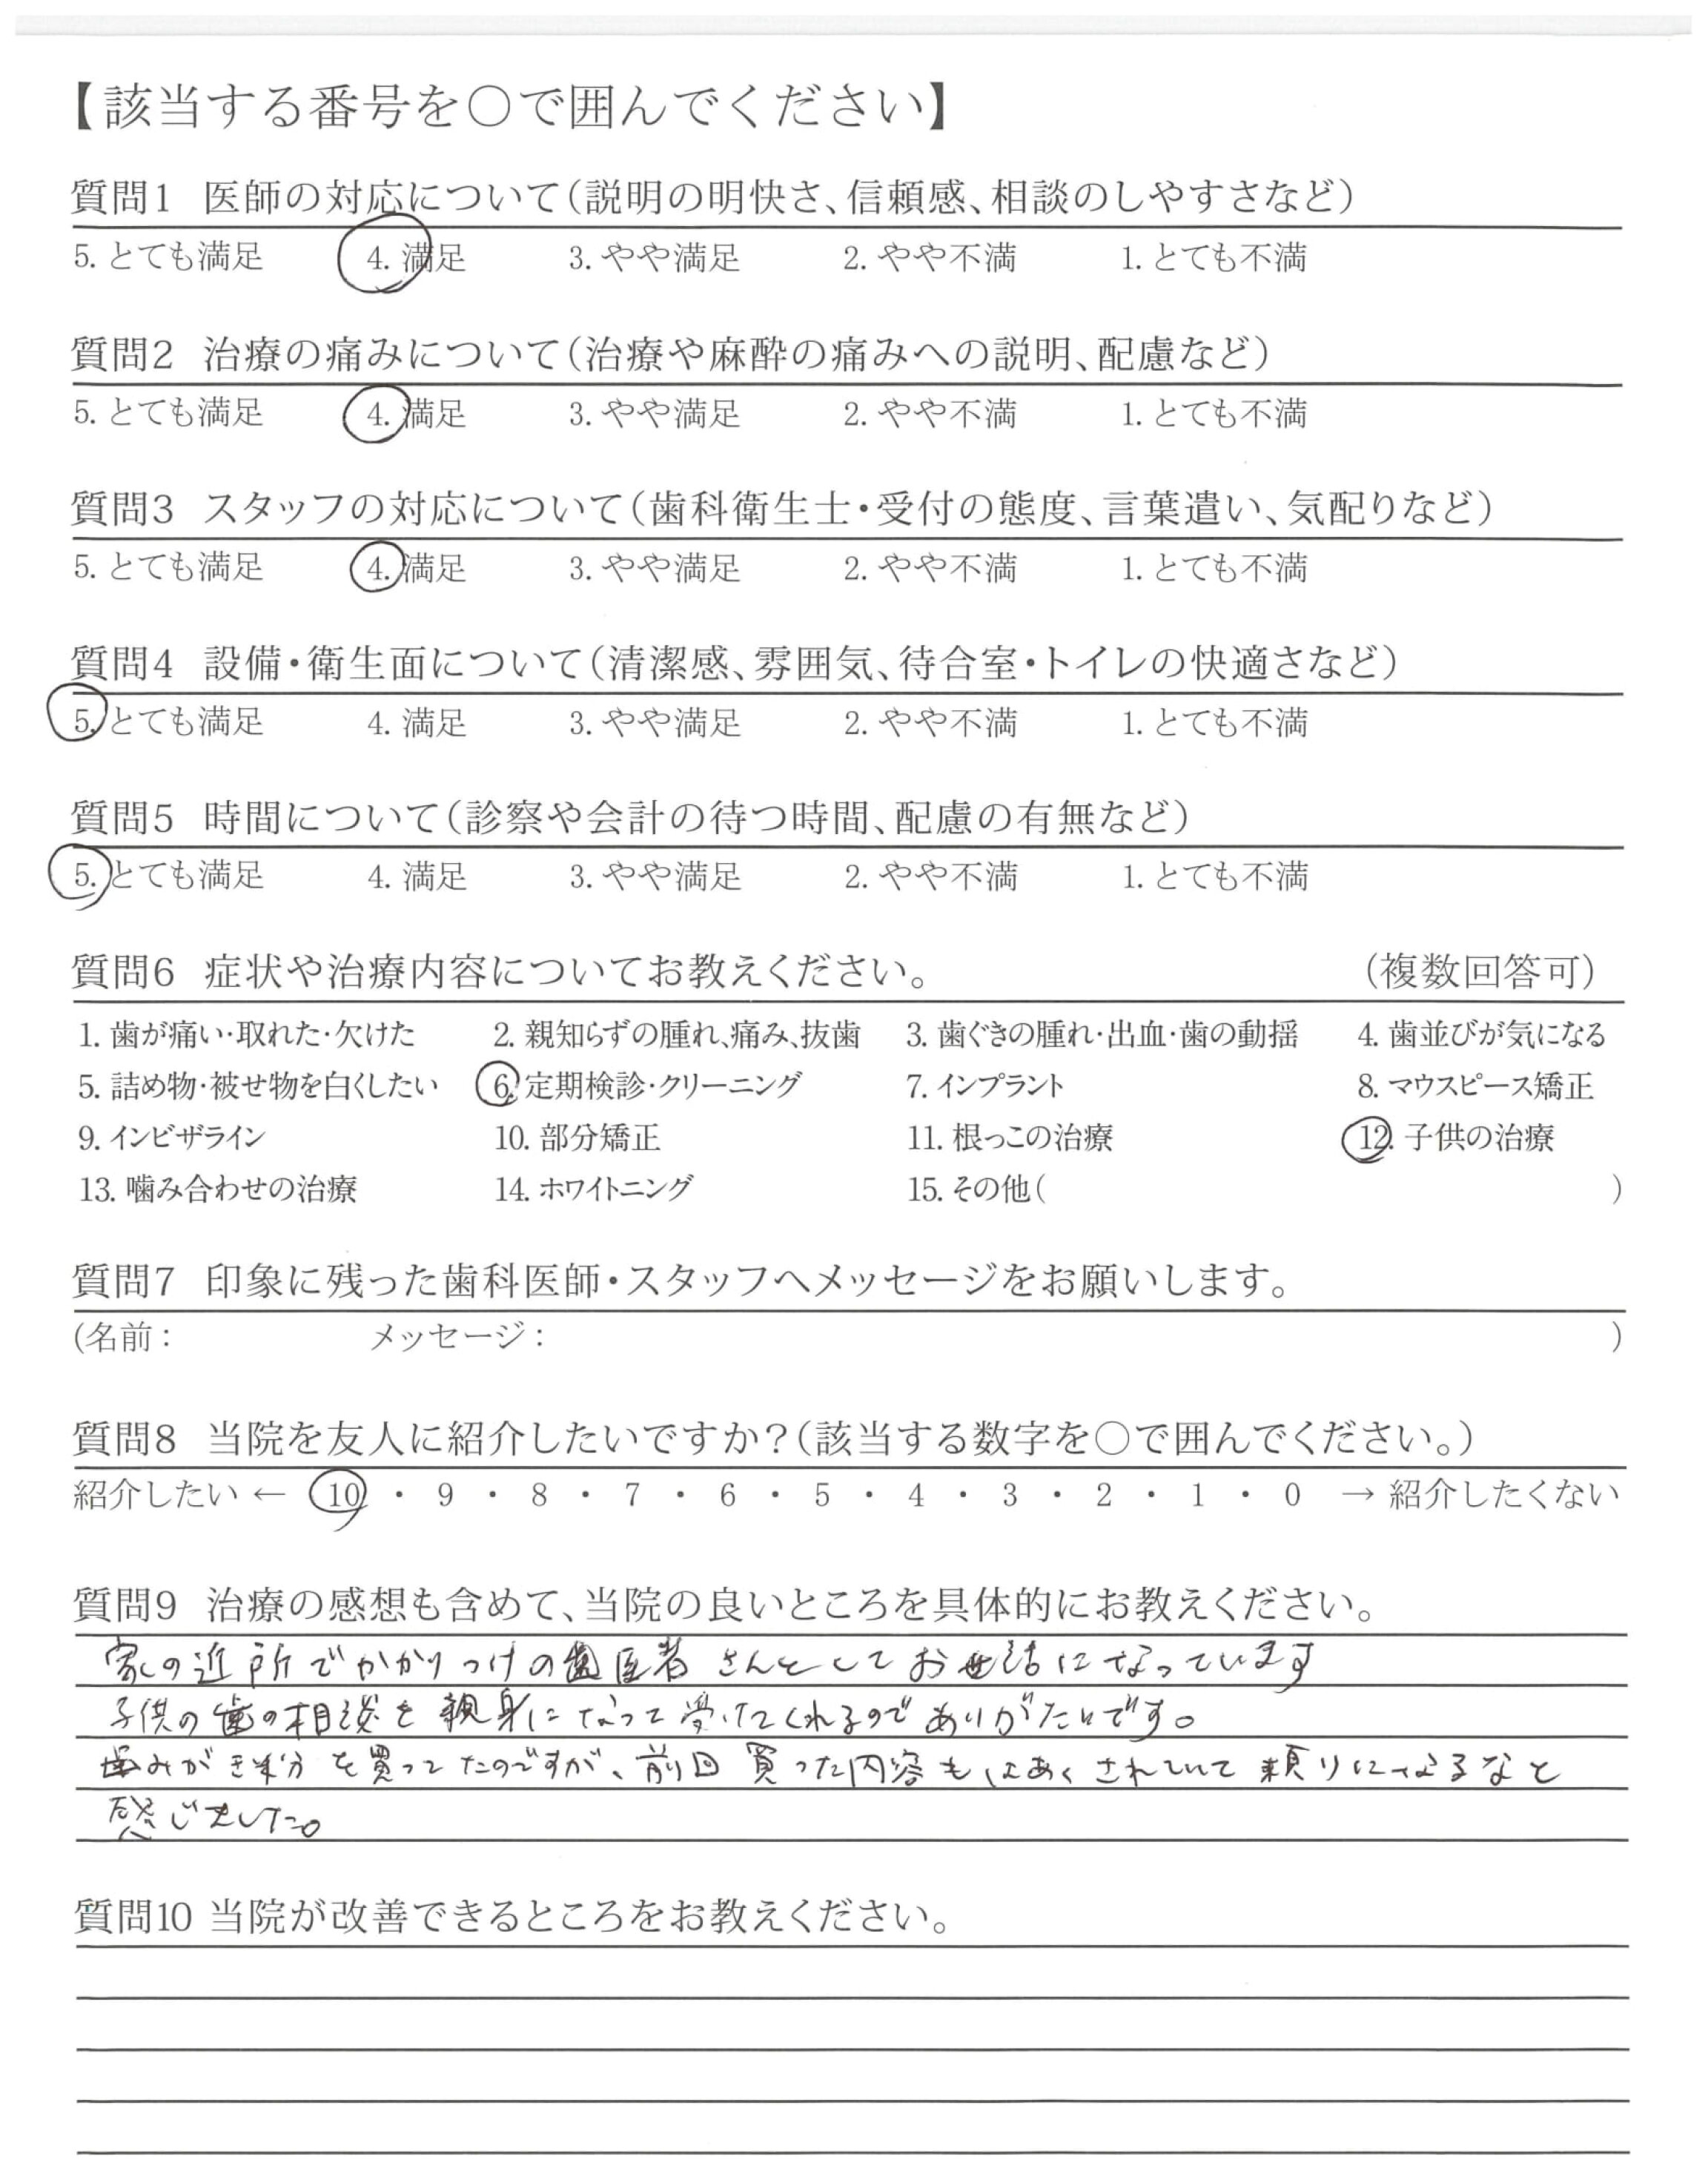 【該当する番号を○で囲んでください】
質問1 医師の対応について（説明の明快さ、信頼感、相談のしやすさなど）
5. とても満足 4. 満足 3. やや満足 2. やや不満 1. とても不満
質問2 治療の痛みについて（治療や麻酔の痛みへの説明、配慮など）
5. とても満足 4. 満足 3. やや満足 2. やや不満 1. とても不満
質問3 スタッフの対応について（歯科衛生士・受付の態度、言葉遣い、気配りなど）
5. とても満足 4. 満足 3. やや満足 2. やや不満 1. とても不満
質問4 設備・衛生面について（清潔感、雰囲気、待合室・トイレの快適さなど）
5. とても満足 4. 満足 3. やや満足 2. やや不満 1. とても不満
質問5 時間について（診察や会計の待つ時間、配慮の有無など）
5. とても満足 4. 満足 3. やや満足 2. やや不満 1. とても不満
質問6 症状や治療内容についてお教えください。 （複数回答可）
1. 歯が痛い・取れた・欠けた 2. 親知らずの腫れ、痛み、抜歯 3. 歯ぐきの腫れ・出血・歯の動揺 4. 歯並びが気になる
5. 詰め物・被せ物を白くしたい 6. 定期検診・クリーニング 7. インプラント 8. マウスピース矯正
9. インビザライン 10. 部分矯正 11. 根っこの治療 12. 子供の治療
13. 噛み合わせの治療 14. ホワイトニング 15. その他（ ）
質問7 印象に残った歯科医師・スタッフへメッセージをお願いします。
（名前： メッセージ： ）
質問8 当院を友人に紹介したいですか？（該当する数字を○で囲んでください。）
紹介したい ← 10 ・ 9 ・ 8 ・ 7 ・ 6 ・ 5 ・ 4 ・ 3 ・ 2 ・ 1 ・ 0 → 紹介したくない
質問9 治療の感想も含めて、当院の良いところを具体的にお教えください。
家の近所でかかりつけの歯医者さんとしてお世話になっています
子供の歯の相談を親身になって受けてくれるのでありがたいです。
歯みがき粉を買ってたのですが、前回買った内容もはあくされていて頼りになるなと
感じました。
質問10 当院が改善できるところをお教えください。